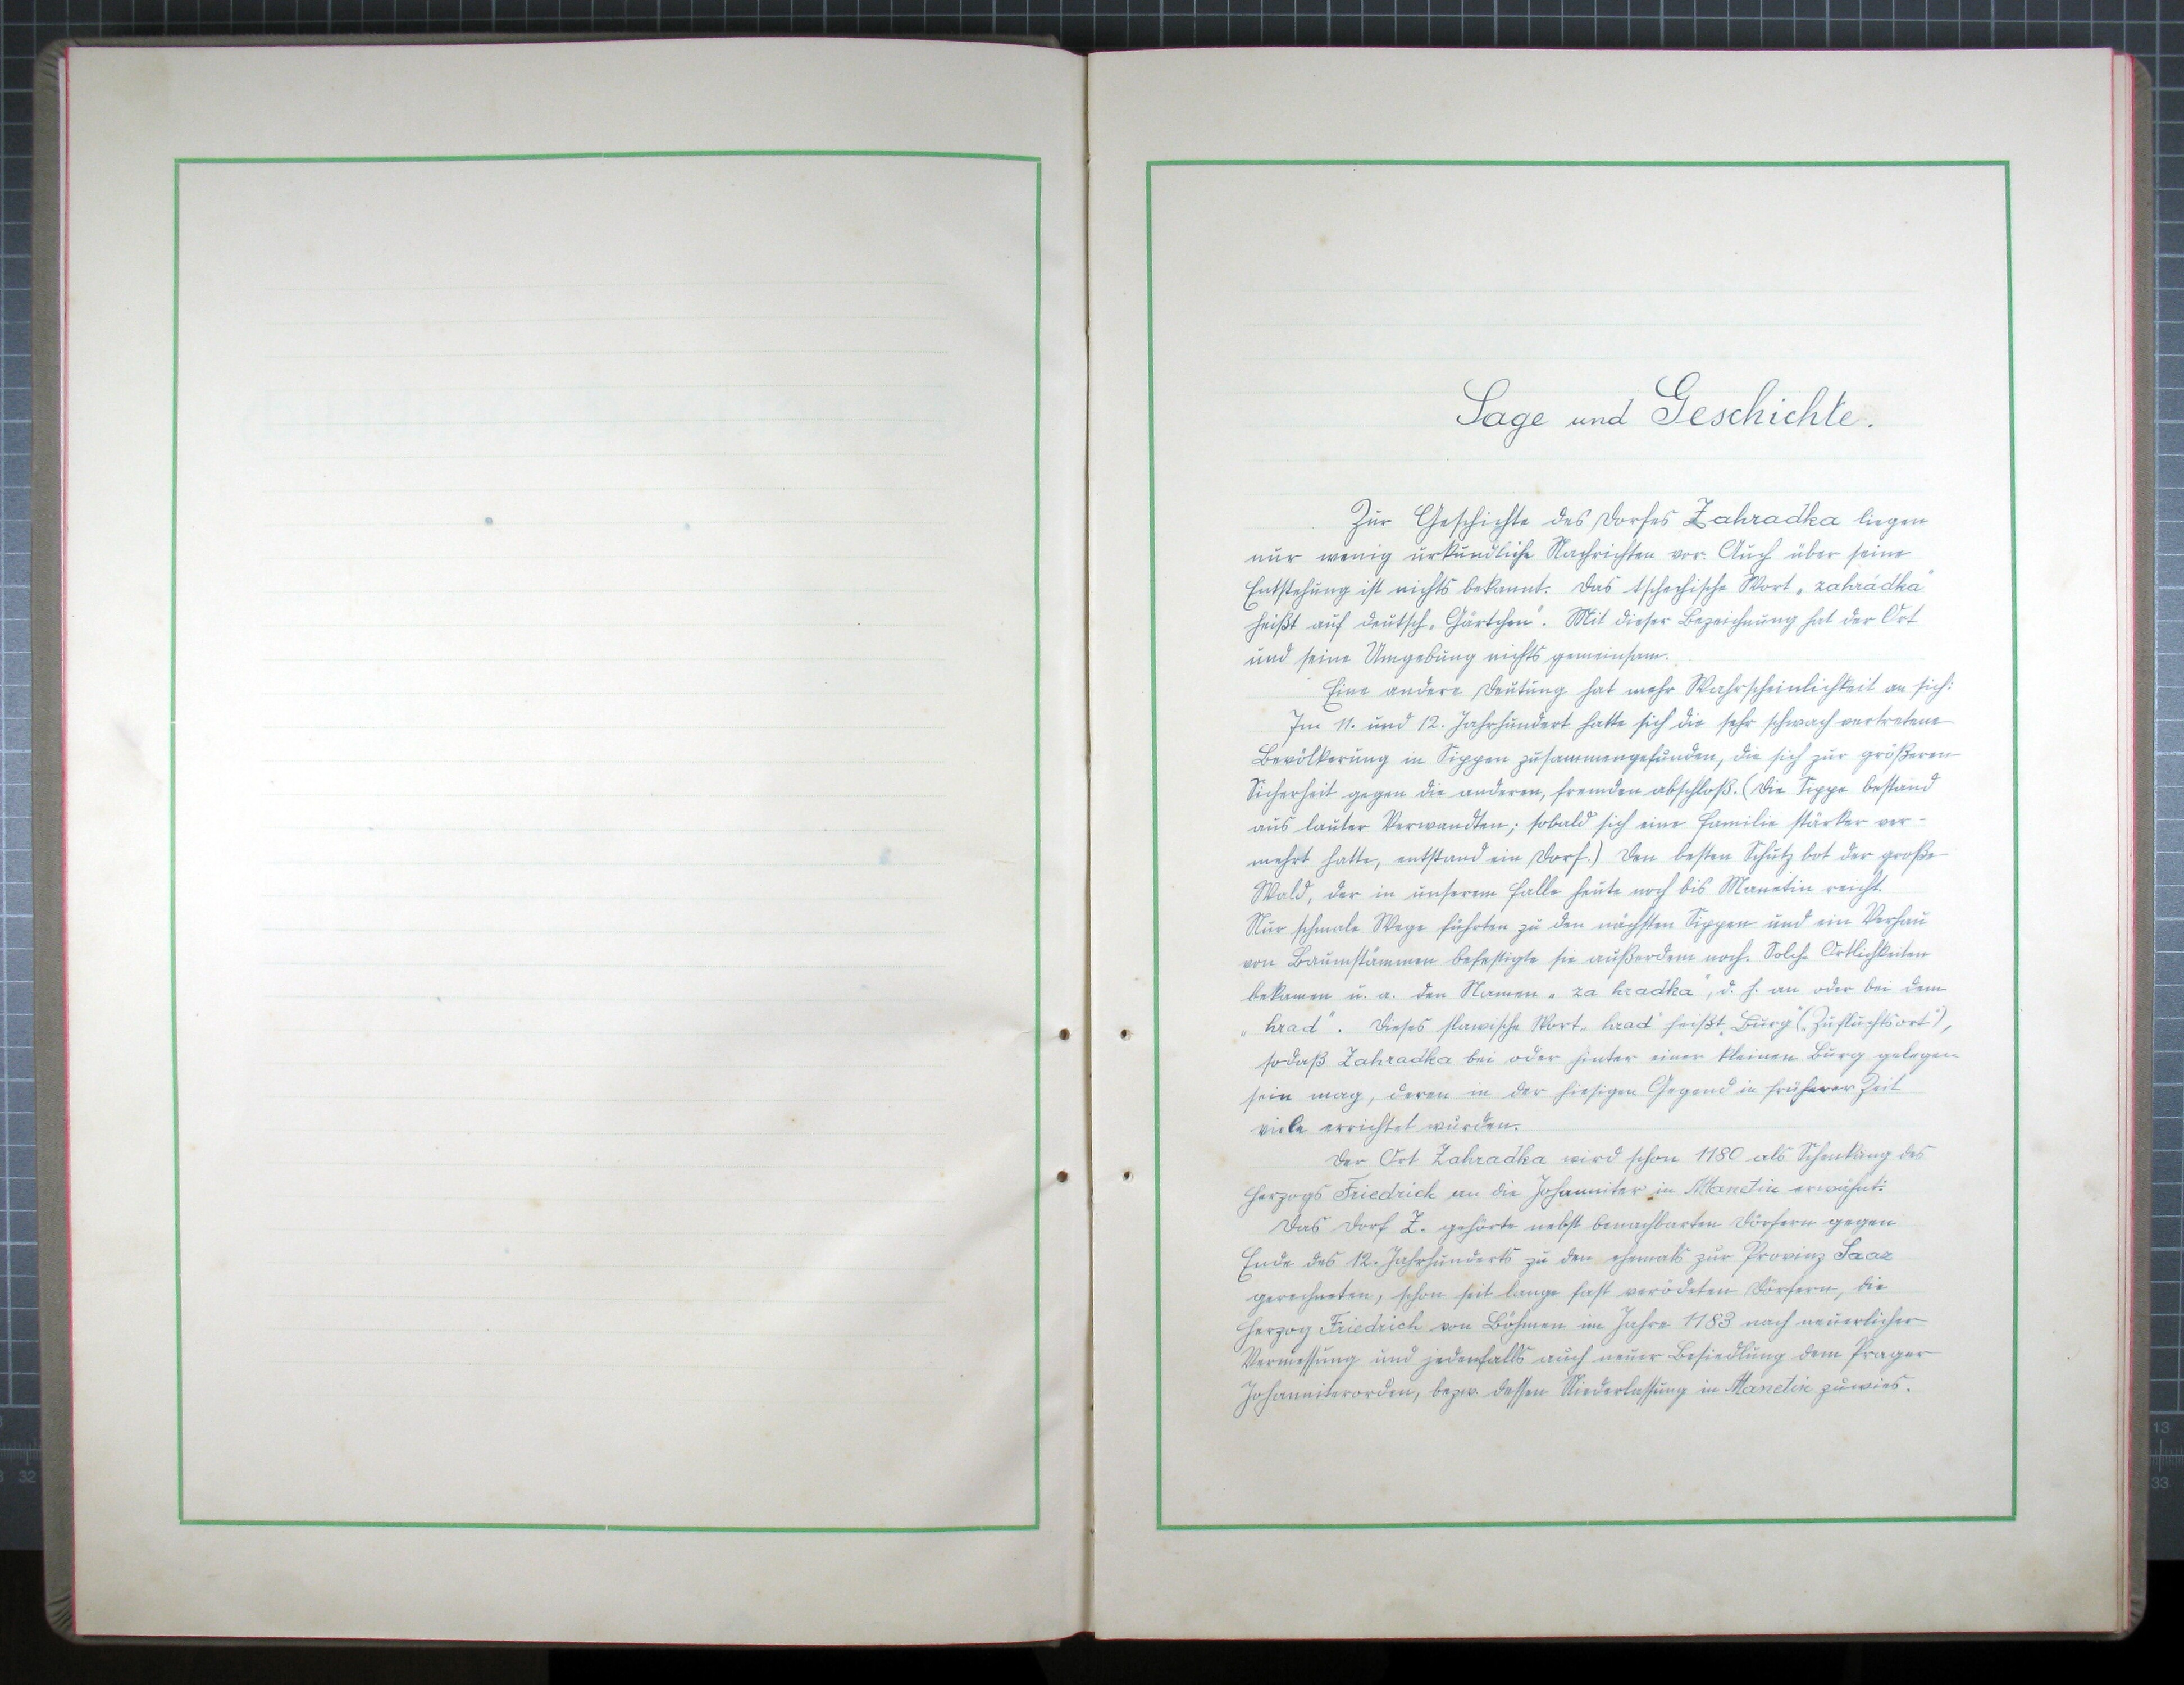 Sage und Geschichte.
Zur Geschichte des Dorfes Zahradka liegen
nur wenig urkundliche Nachrichten vor. Auch über seine
Entstehung ist nichts bekannt. Das tschechische Wort „zahrádka"
heißt auf deutsch „Gärtchen". Mit dieser Bezeichnung hat der Ort
und seine Umgebung nichts gemeinsam.
Eine andere Deutung hat mehr Wahrscheinlichkeit an sich:
Im 11. und 12. Jahrhundert hatte sich die sehr schwach vertretene
Bevölkerung in Sippen zusammengefunden, die sich zur größeren
Sicherheit gegen die anderen, fremden abschloß. (Die Sippe bestand
aus lauter Verwandten; sobald sich eine Familie stärker ver-
mehrt hatte, entstand ein Dorf.) Den besten Schutz bot der große
Wald, der in unserem Falle heute noch bis Manetin reicht.
Nur schmale Wege führten zu den nächsten Sippen und ein Verhau
von Baumstämmen befestigte sie außerdem noch. Solche Örtlichkeiten
bekamen u. a. den Namen „za hradka", d. h. an oder bei dem
„hrad". Dieses slawische Wort „hrad" heißt „Burg" („Zufluchtsort"),
sodaß Zahradka bei oder hinter einer kleinen Burg gelegen
sein mag, deren in der hiesigen Gegend in früherer Zeit
viele errichtet wurden.
Der Ort Zahradka wird schon 1180 als Schenkung des
Herzogs Friedrich an die Johanniter in Manetin erwähnt:
Das Dorf Z. gehörte nebst benachbarten Dörfern gegen
Ende des 12. Jahrhunderts zu den ehemals zur Provinz Saaz
gerechneten, schon seit lange fast verödeten Dörfern, die
Herzog Friedrich von Böhmen im Jahre 1183 nach neuerlicher
Vermessung und jedenfalls auch neuer Besiedlung dem Prager
Johanniterorden, bezw. dessen Niederlassung in Manetin zuwies.
32
13
33